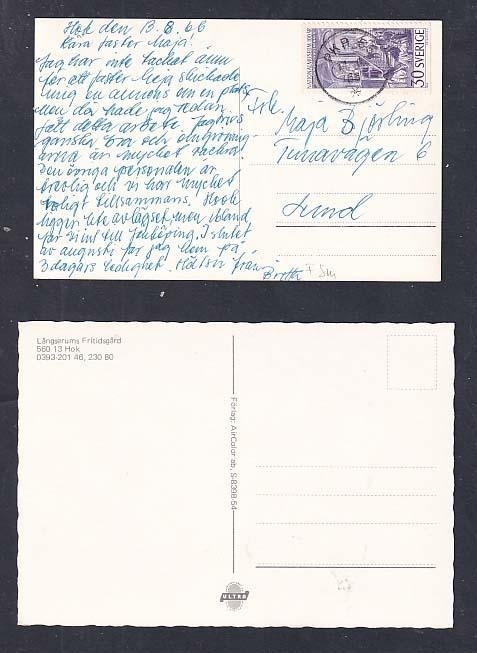 Hok den 13.8.66
Kära faster Maja!
Jag har inte tackat ännu
för att faster Maja skickade
mig en annons om en plats
men då hade jag redan
fått detta arbete. Jag trivs
ganska bra och omgivning-
arna är mycket vackra.
Den övriga personalen är
trevlig och vi har mycket
roligt tillsammans. Hook
ligger lite avlägset, men ibland
far vi in till Jönköping. I slutet
av augusti får jag hem på
3 dagars ledighet. Hälsn. från
Britta
SVERIGE
30
Frk.
Maja Björling
Tunavägen 6
Lund
Långserums Fritidsgård
560 13 Hok
0393-201 46, 230 80
Förlag: AirColor ab, S-8398-54
ULTRA